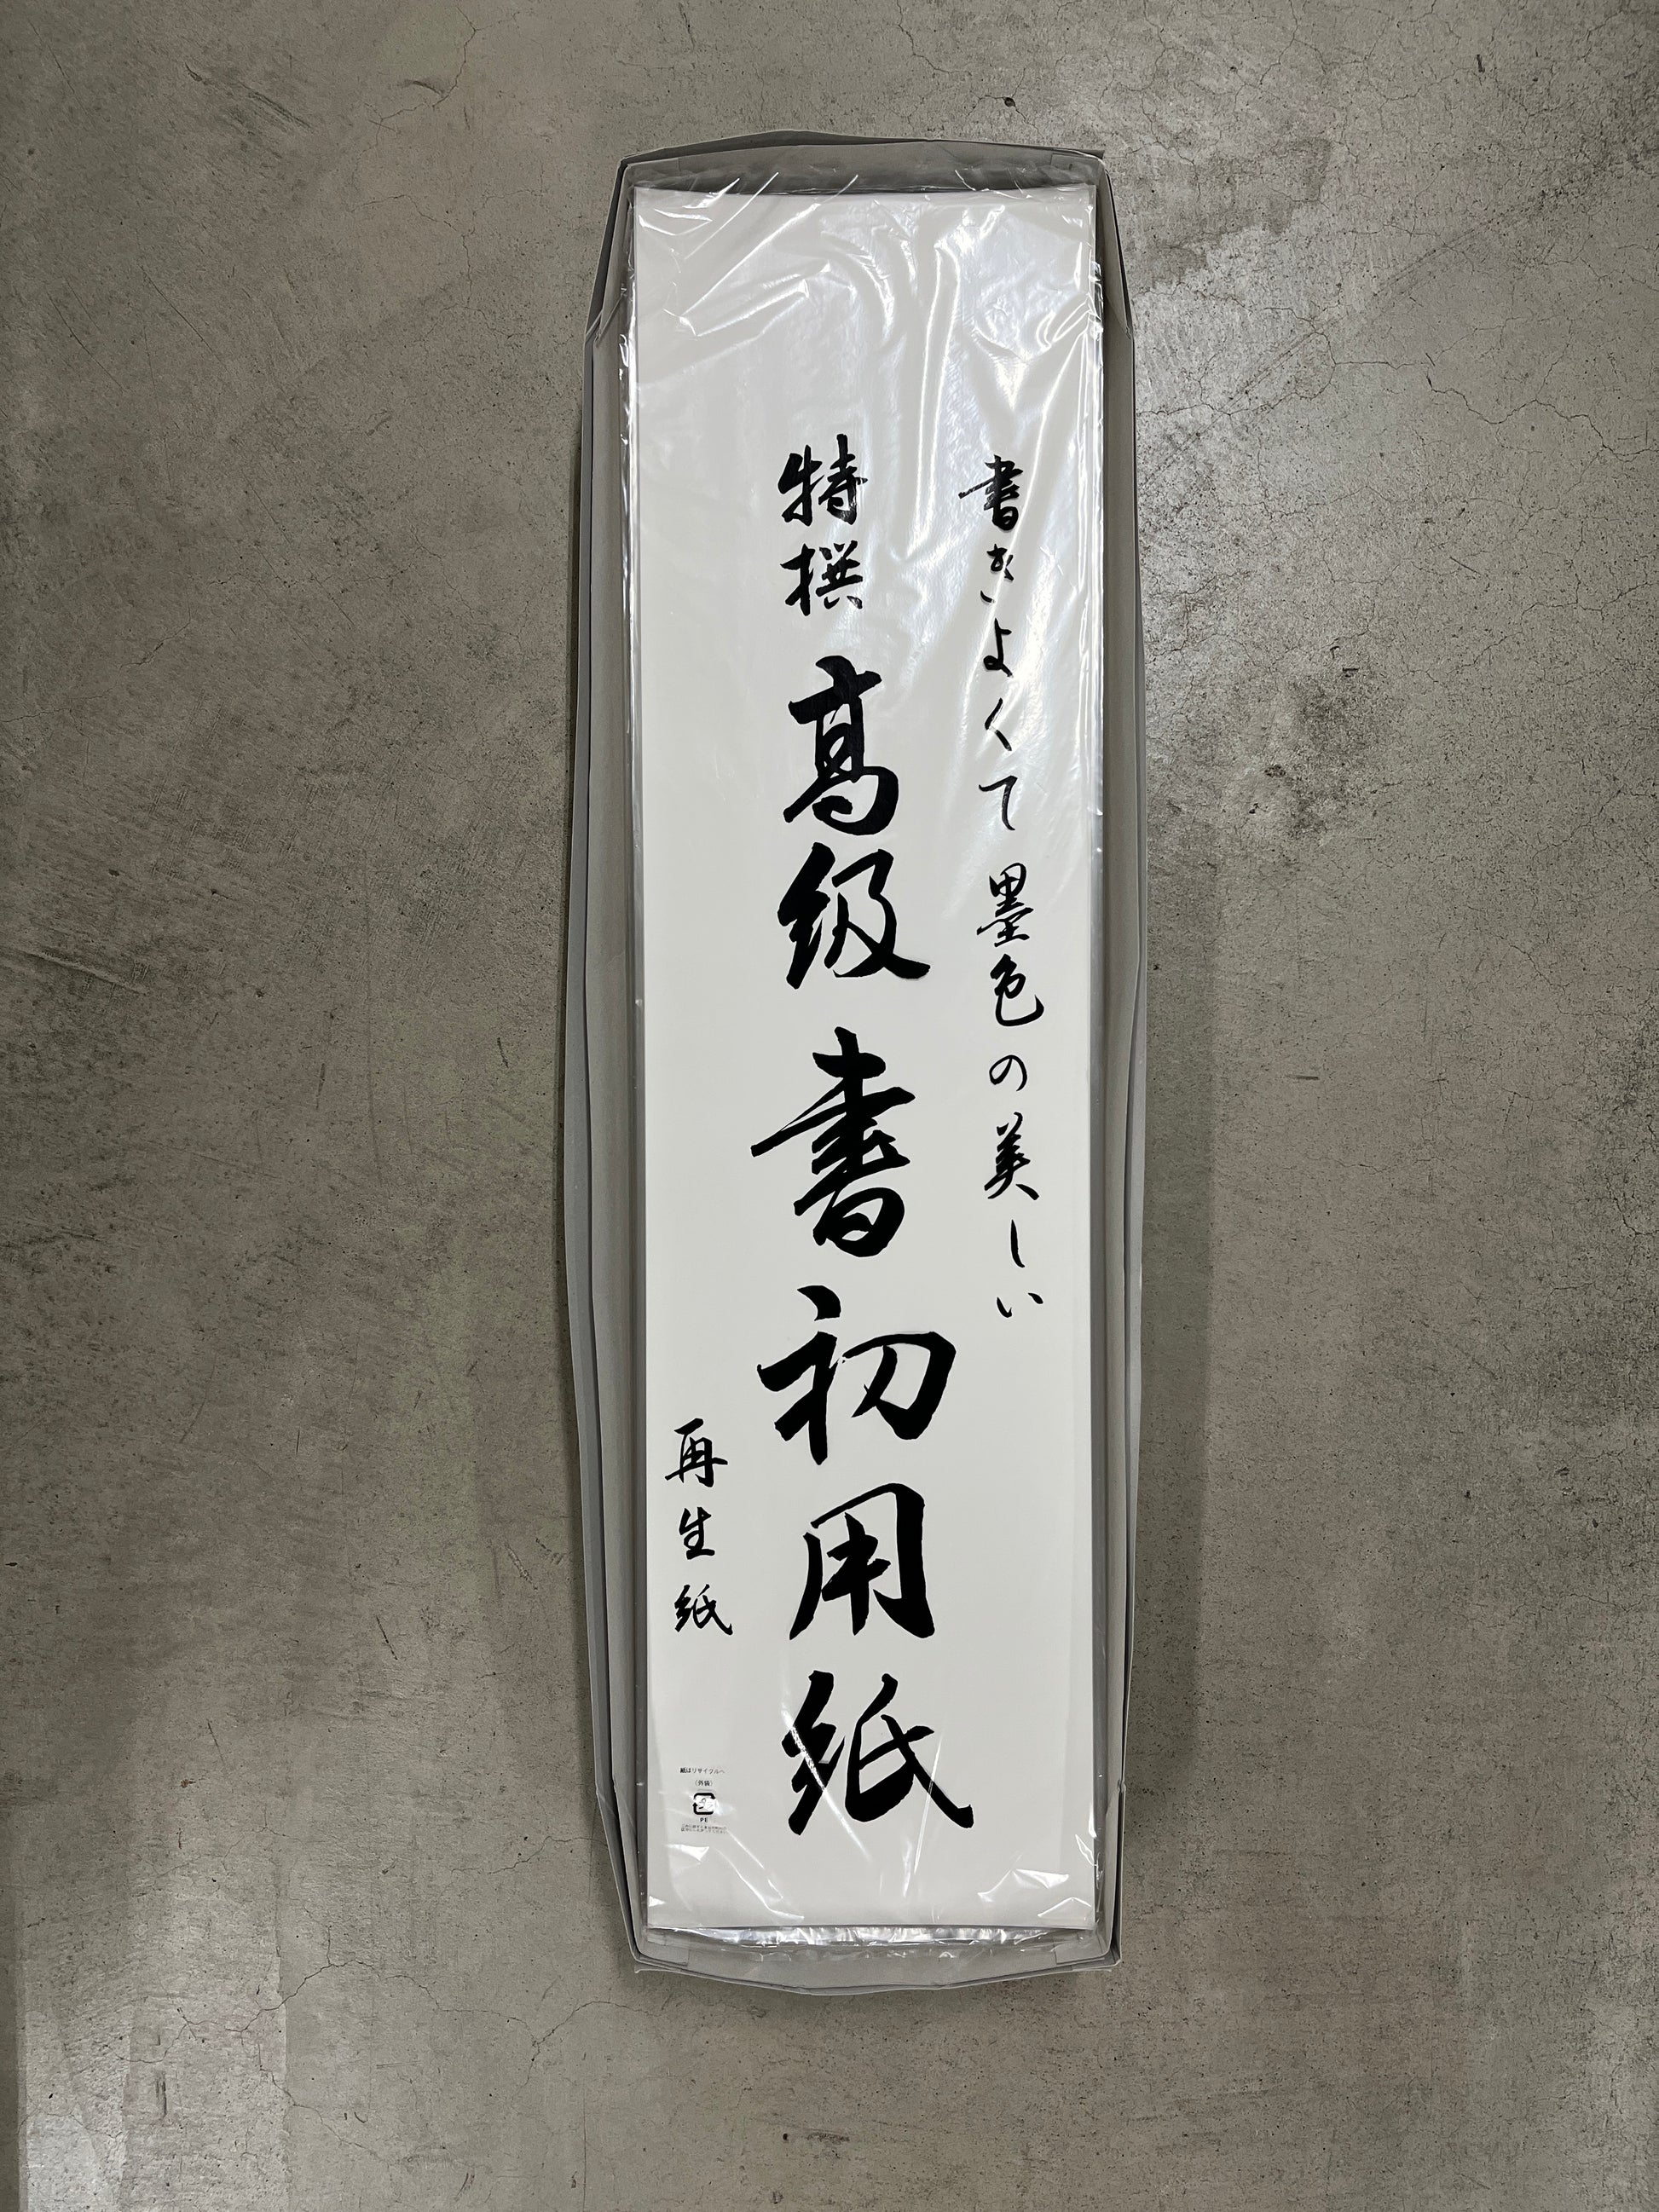 書きよくて墨色の美しい
特撰 高級書初用紙
再生紙
紙はリサイクルへ
(外袋)
PE